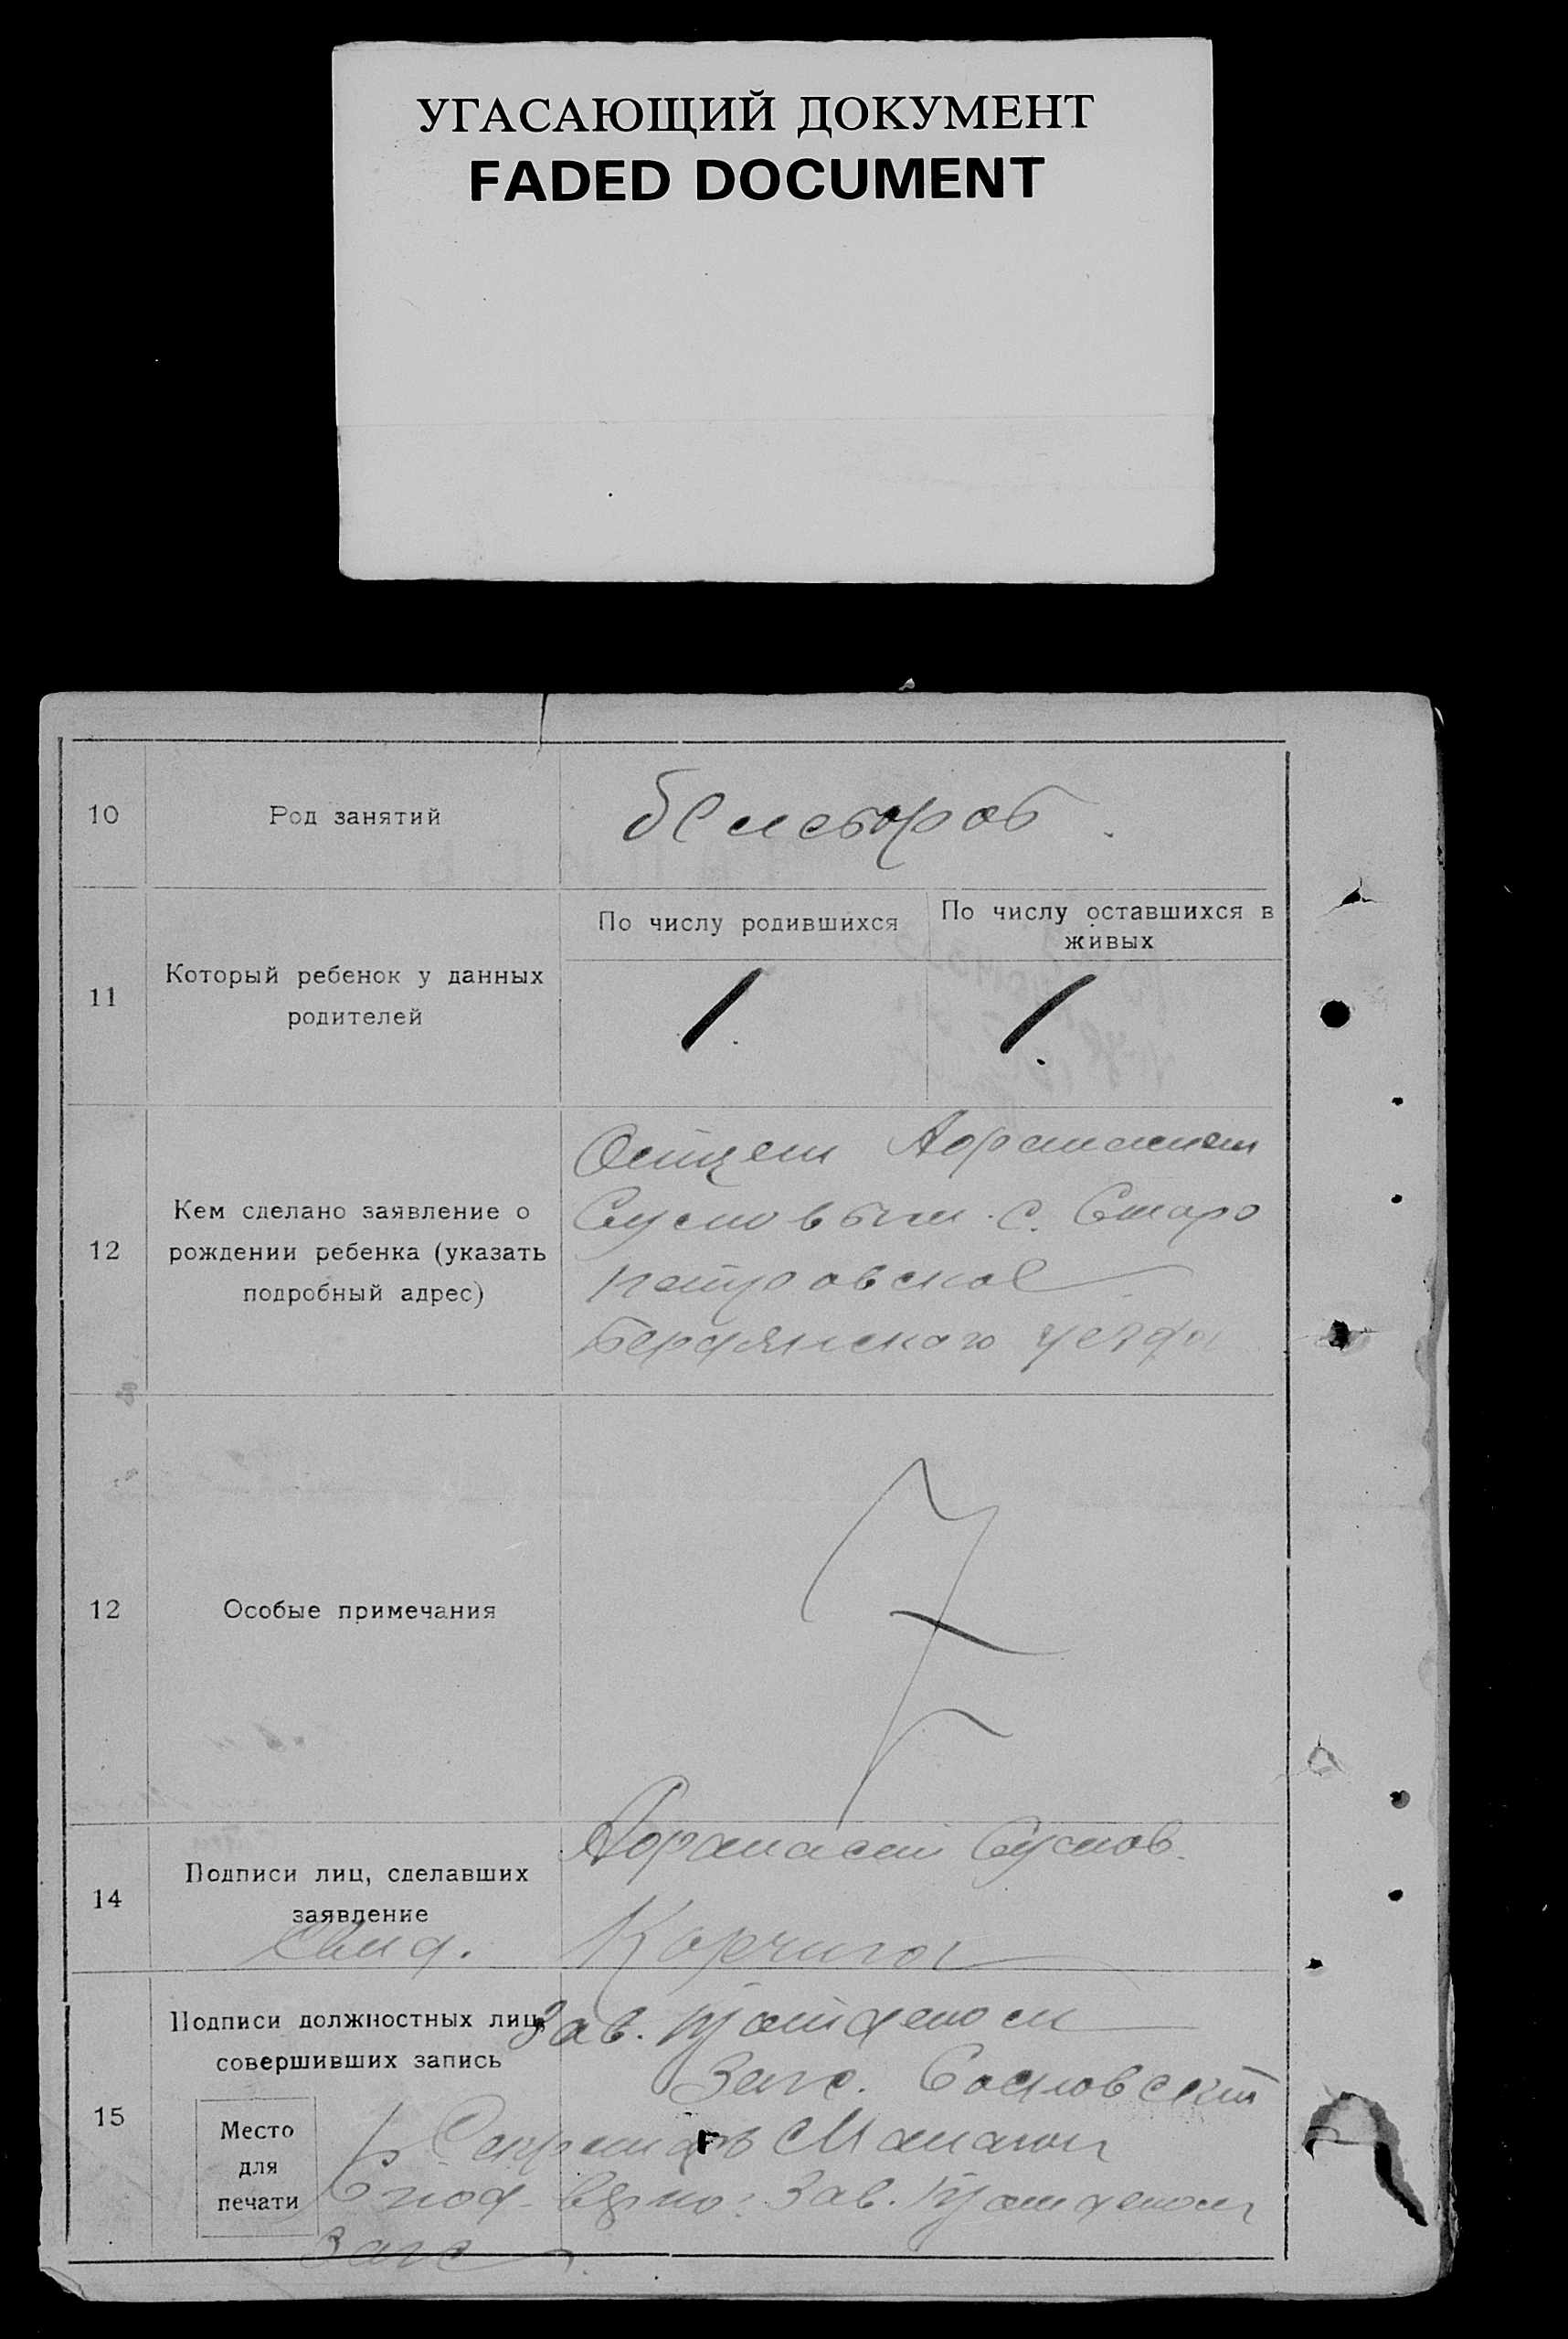 УГАСАЮЩИЙ ДОКУМЕНТ
FADED DOCUMENT
10
Род занятий
11
Который ребенок у данных
родителей
По числу родившихся
1.
По числу оставшихся в
живых
1.
12
Кем сделано заявление о
рождении ребенка (указать
подробный адрес)
Отцем Афанасием
с. Старо
петровское
Бердянского уезда
12
Особые примечания
14
Подписи лиц, сделавших
заявление
Свид.
Афанасий
Корчига
15
Подписи должностных лиц,
совершивших запись
Место
для
печати
Зав.
Загс. Сосновский
Секретарь
С под. верно: Зав.
Загс